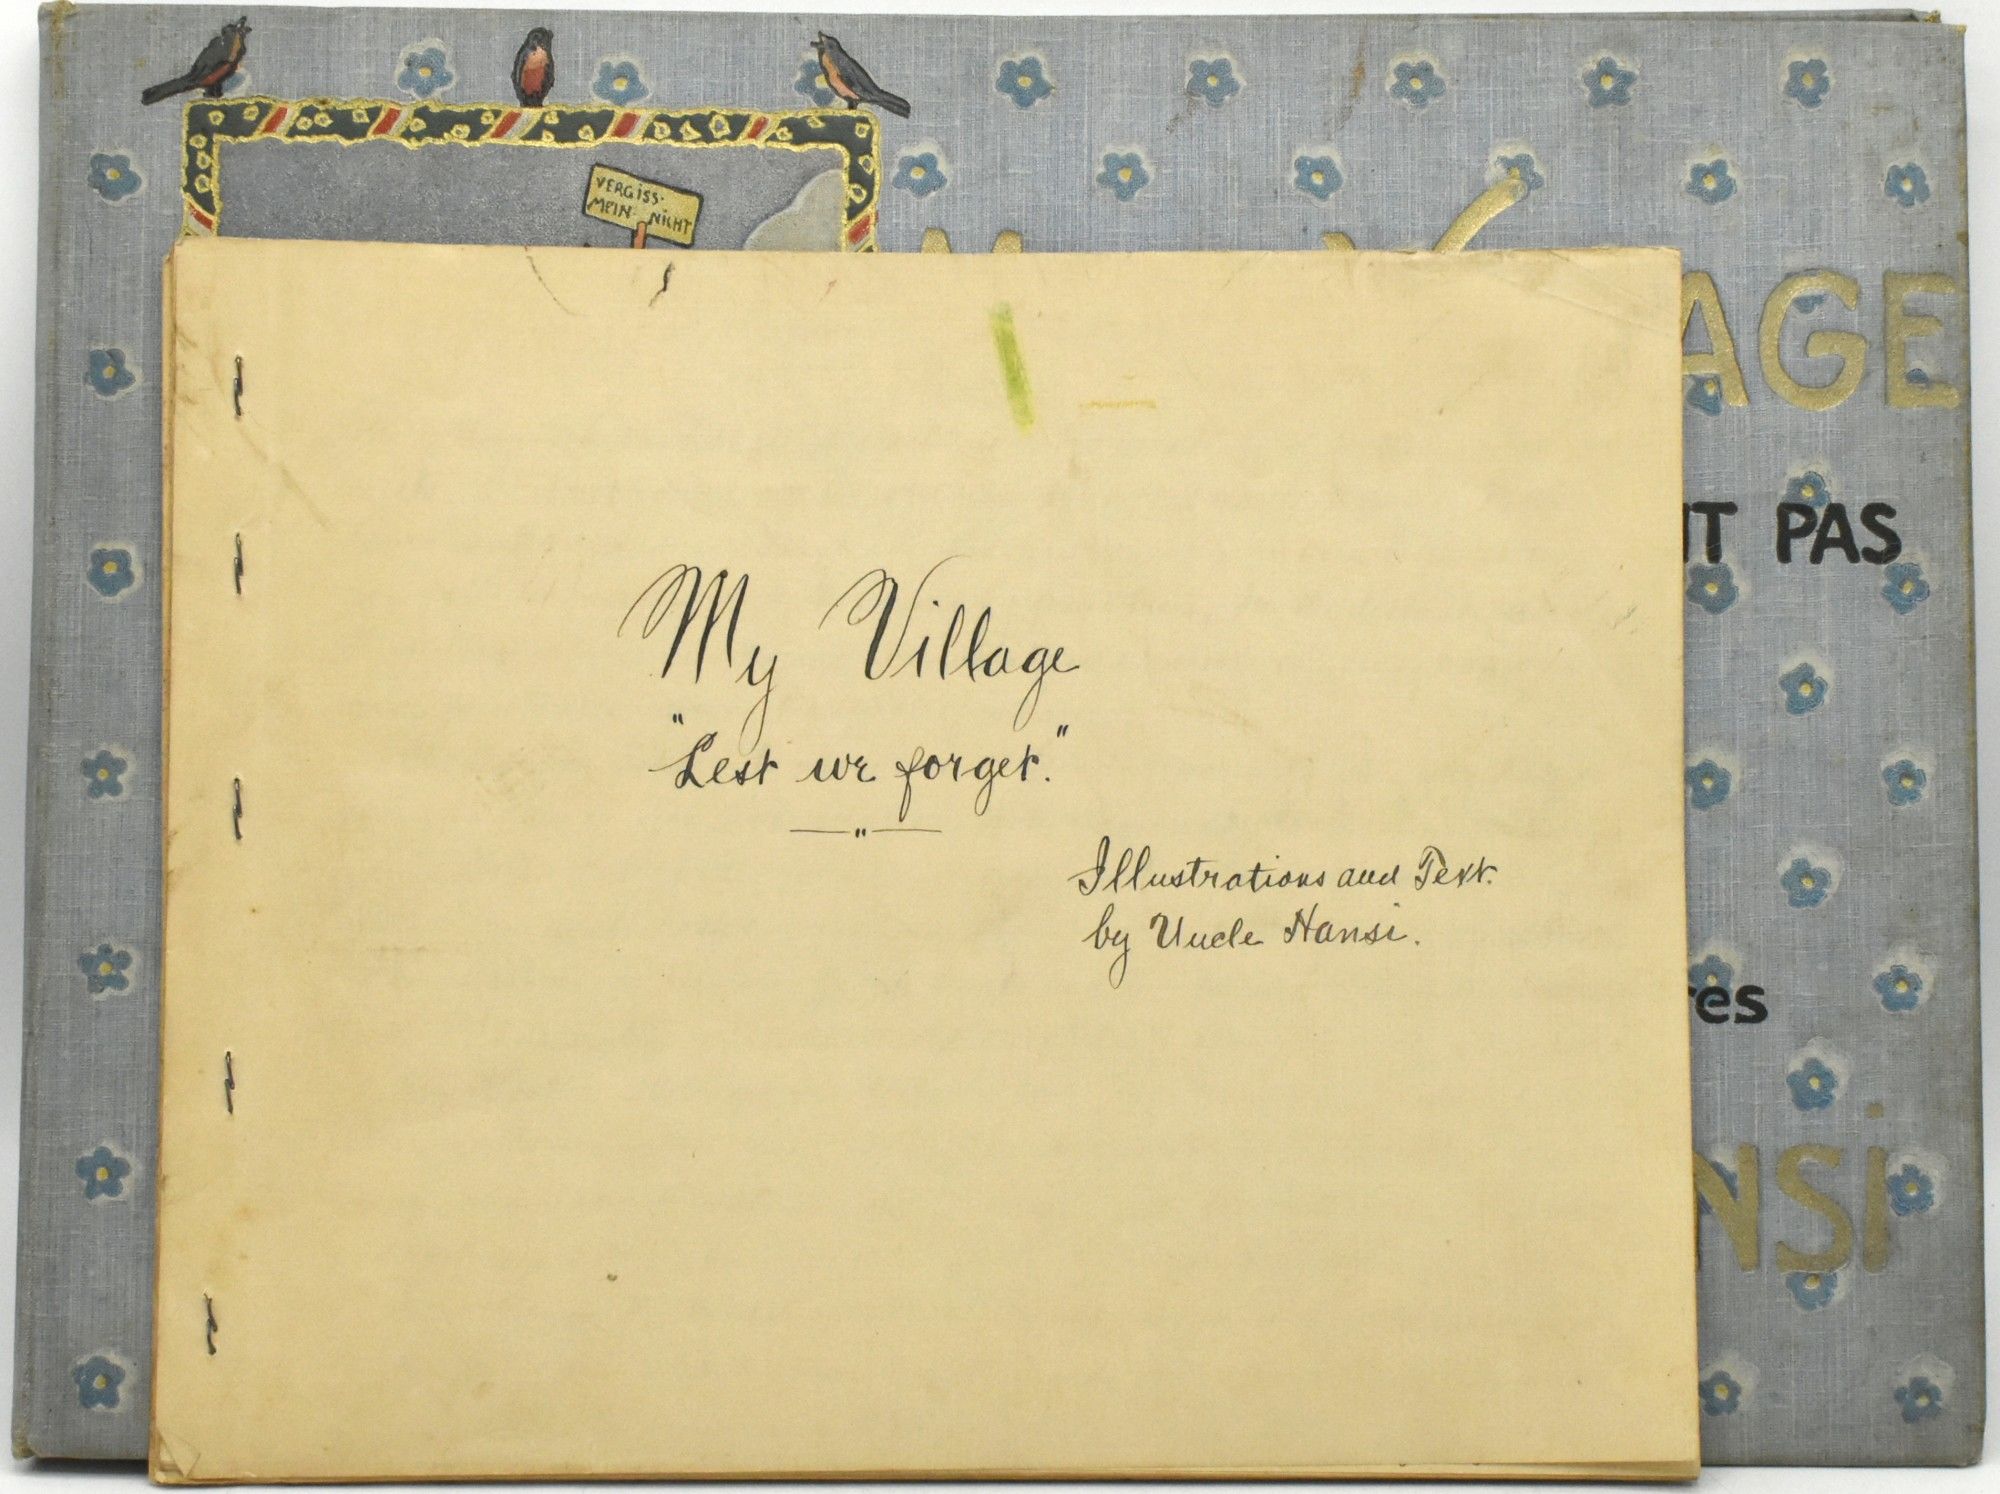 VERGISS-
MEIN-NICHT
M V AGE
NT PAS
My Village
"Lest we forget."
Illustrations and Text.
by Uncle Hansi.
res
NSi